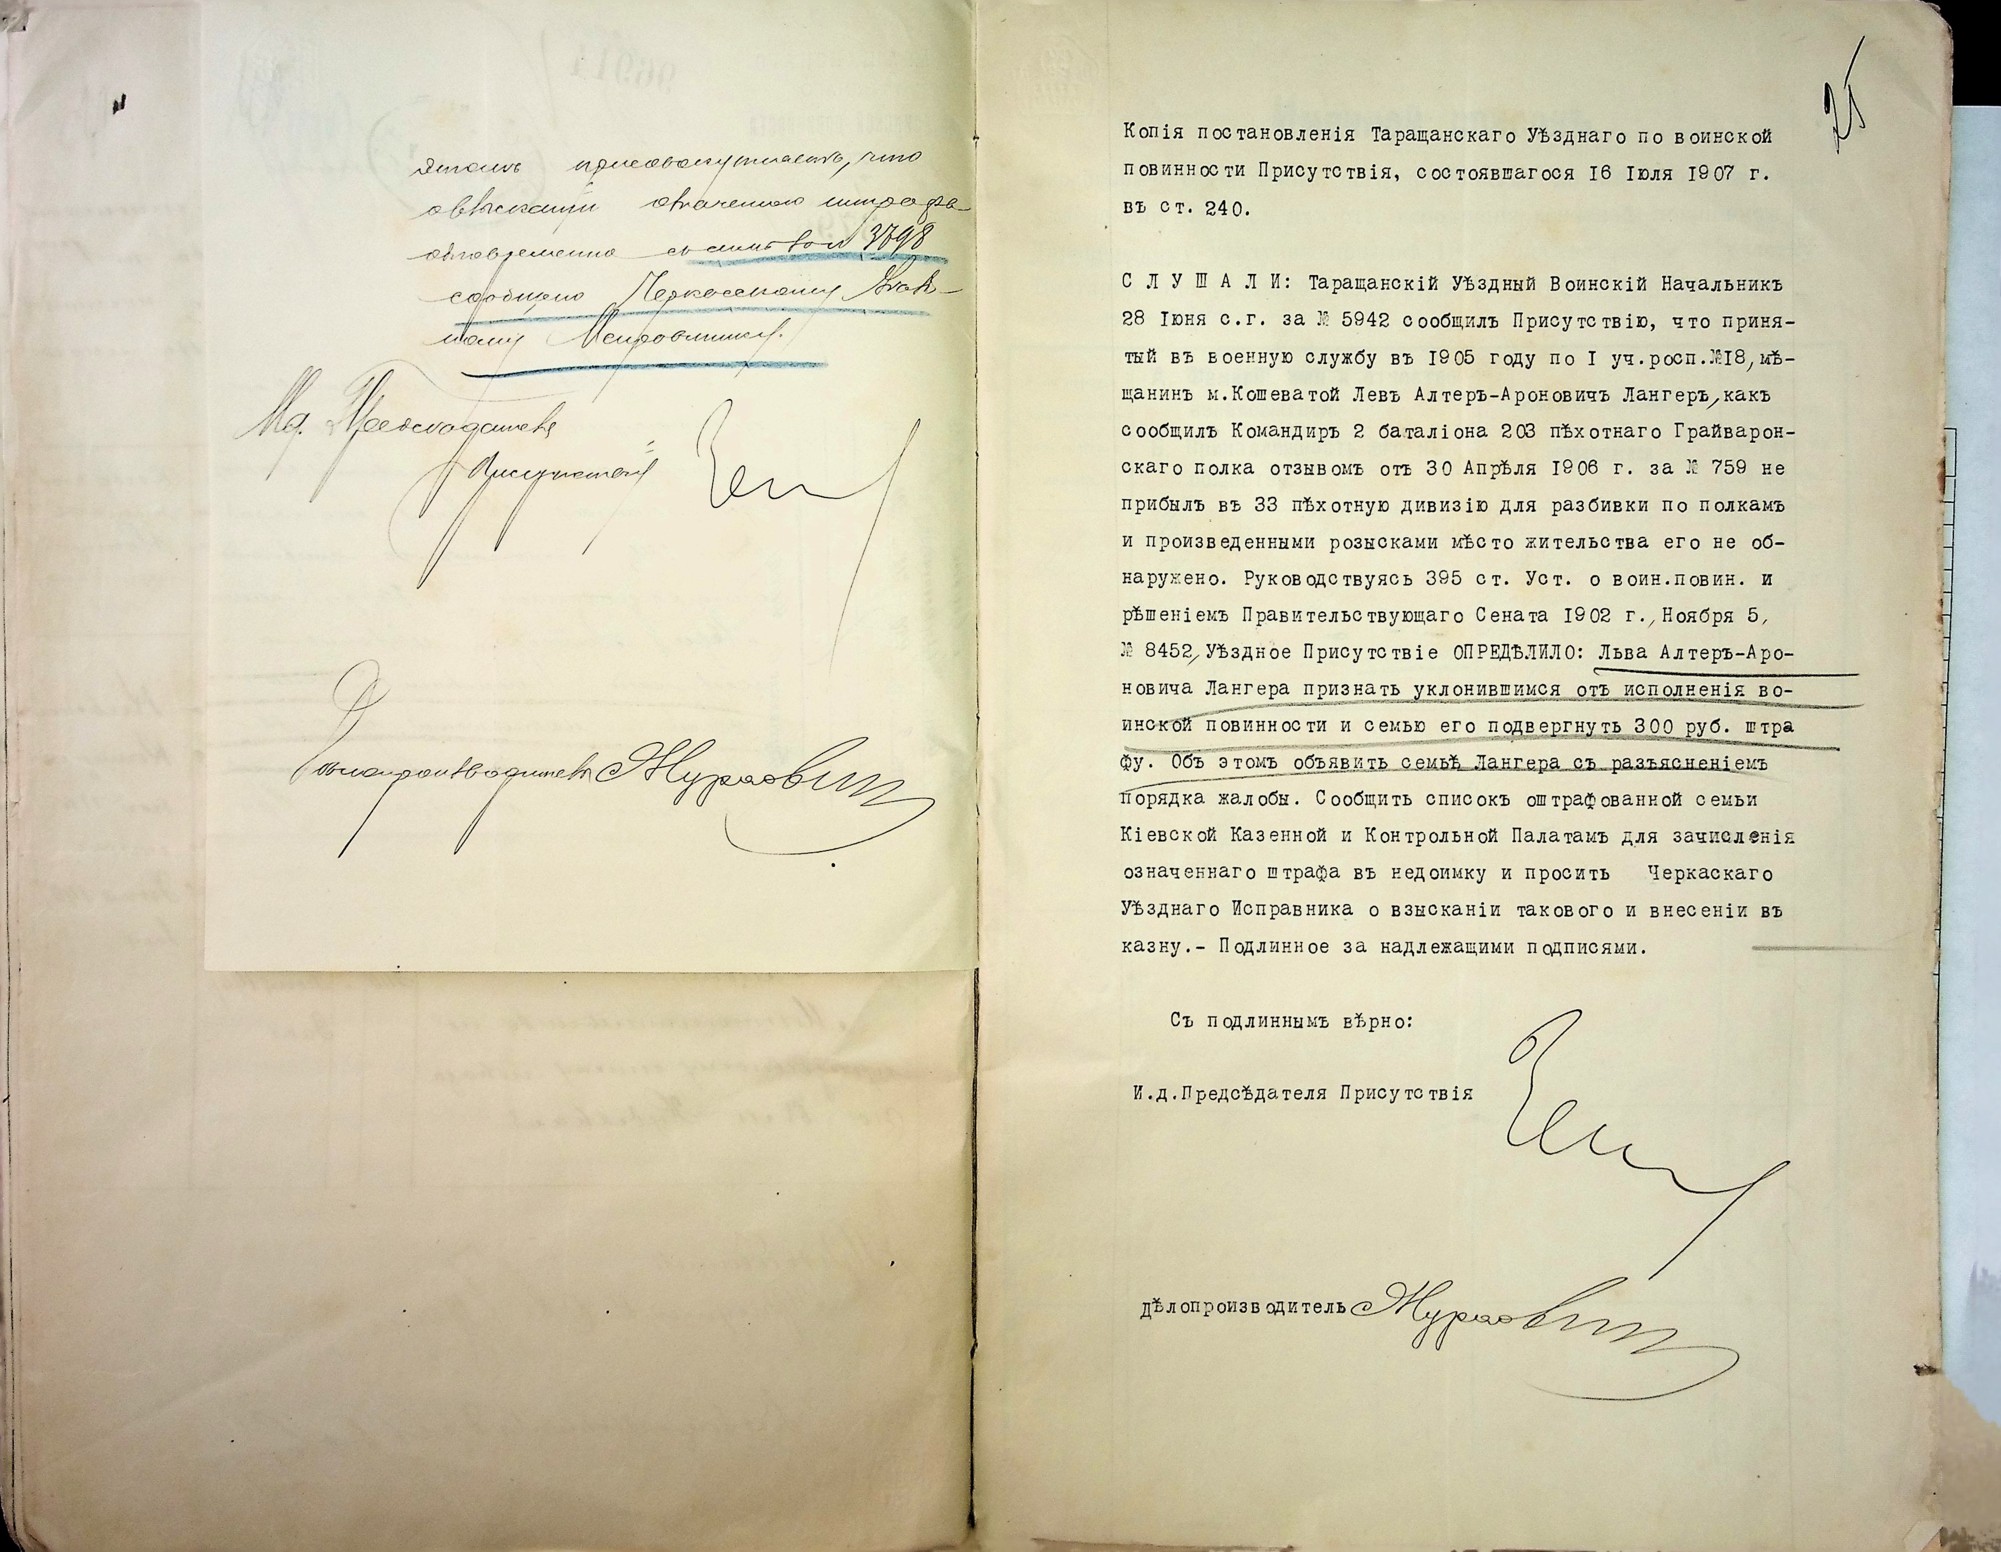 этомъ присовокупляетъ, что
о взысканіи означеннаго штрафа
одновременно съ симъ за № 3798
сообщено Черкасскому Уѣзд-
ному Исправнику.
И.д. Предсѣдателя
Присутствія
Дѣлопроизводитель
25
Копія постановленія Таращанскаго Уѣзднаго по воинской
повинности Присутствія, состоявшагося I6 Іюля I907 г.
въ ст. 240.
С Л У Ш А Л И: Таращанскій Уѣздный Воинскій Начальникъ
28 Іюня с.г. за № 5942 сообщилъ Присутствію, что приня-
тый въ военную службу въ I905 году по I уч.росп.№I8, мѣ-
щанинъ м.Кошеватой Левъ Алтеръ-Ароновичъ Лангеръ, какъ
сообщилъ Командиръ 2 баталіона 203 пѣхотнаго Грайварон-
скаго полка отзывомъ отъ 30 Апрѣля I906 г. за № 759 не
прибылъ въ 33 пѣхотную дивизію для разбивки по полкамъ
и произведенными розысками мѣсто жительства его не об-
наружено. Руководствуясь 395 ст. Уст. о воин.повин. и
рѣшеніемъ Правительствующаго Сената I902 г., Ноября 5,
№ 8452, Уѣздное Присутствіе ОПРЕДѢЛИЛО: Льва Алтеръ-Аро-
новича Лангера признать уклонившимся отъ исполненія во-
инской повинности и семью его подвергнуть 300 руб. штра
фу. Объ этомъ объявить семьѣ Лангера съ разъясненіемъ
порядка жалобы. Сообщить списокъ оштрафованной семьи
Кіевской Казенной и Контрольной Палатамъ для зачисленія
означеннаго штрафа въ недоимку и просить Черкаскаго
Уѣзднаго Исправника о взысканіи такового и внесеніи въ
казну.- Подлинное за надлежащими подписями.
Съ подлиннымъ вѣрно:
И.д.Предсѣдателя Присутствія
Дѣлопроизводитель